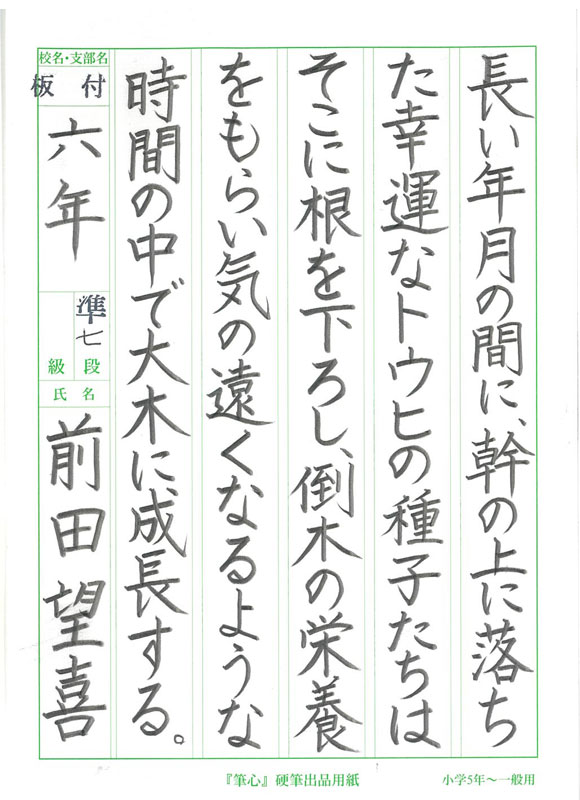 長い年月の間に、幹の上に落ち
た幸運なトウヒの種子たちは
そこに根を下ろし、倒木の栄養
をもらい気の遠くなるような
時間の中で大木に成長する。
校名・支部名
板付
六年
準七
段
級
氏名
前田望喜
『筆心』硬筆出品用紙
小学5年～一般用